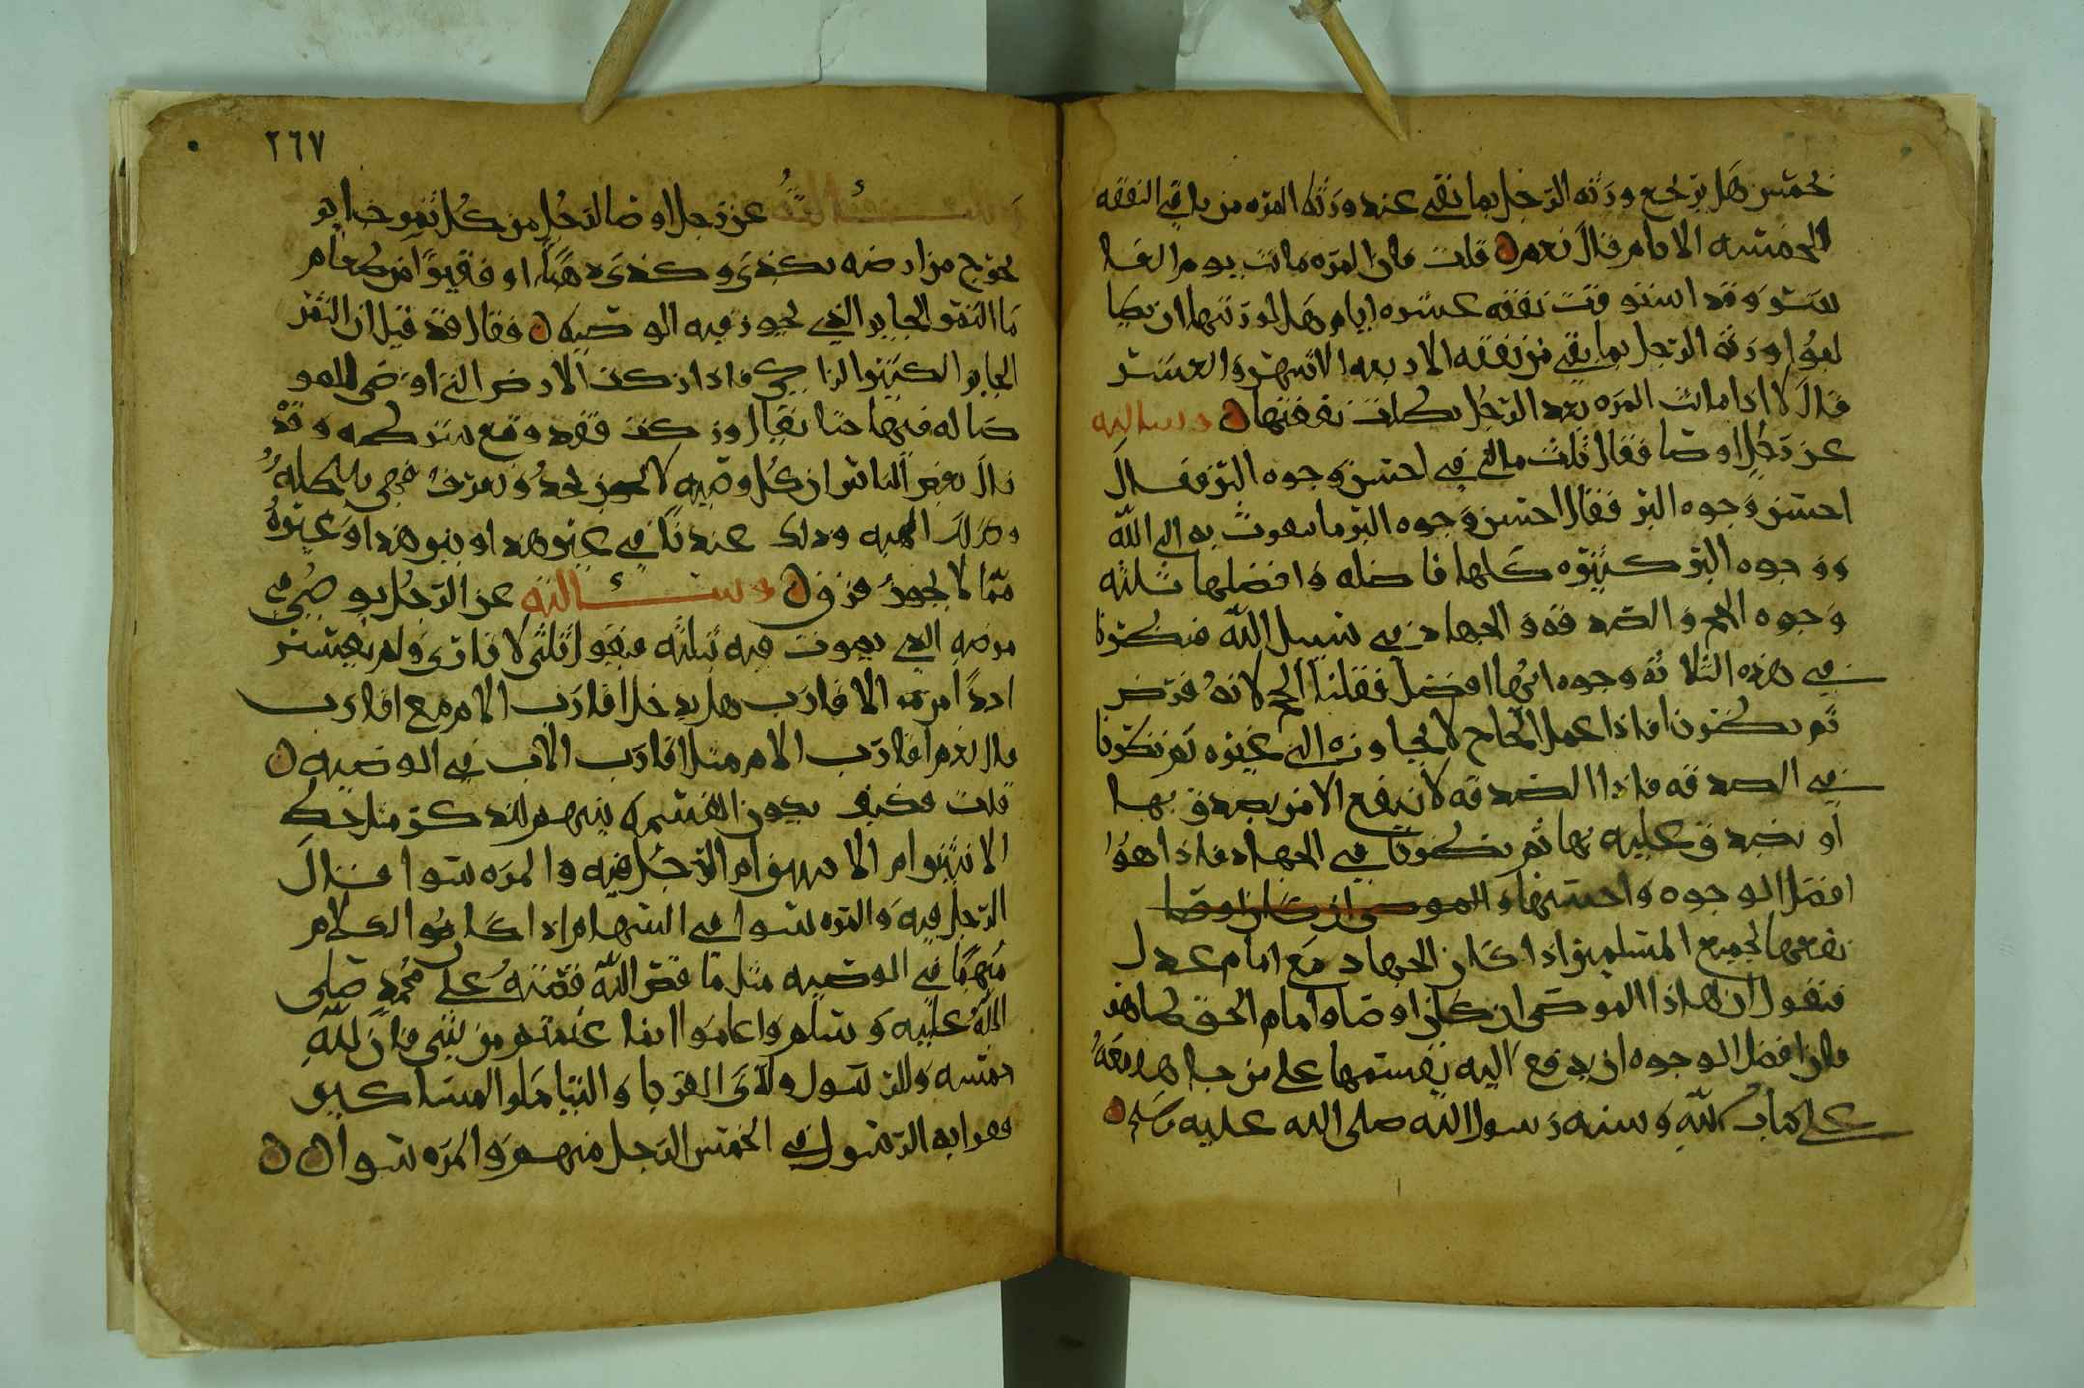 لخمس هل يرجع ورثه الرجل بما بقي عند ورثه المره من باقي النفقه
الخمسه الايام قال نعم ن قلت فان المره ماتت يوم
وقد استوفت نفقه عشره ايام هل لورثتها ان
ورثه الرجل بما بقي من نفقه الاربعه الاشهر والعشر
قال لا اذا ماتت المره بعد الرجل بطلت نفقتها ن وسالته
عن رجل اوصا فقال ثلث مالي في احسن وجوه البر فقال
احسن وجوه البر فقال احسن وجوه البر ما به الى الله
ووجوه البر كثيره كلها فاضله وافضلها ثلثه
وجوه الحج والصدقه والجهاد في سبيل الله فنظرنا
في هذه الثلاثه وجوه ايها افضل فقلنا الحج لانه فرض
ثم نظرنا فاذا عمل الحاج لا يجاوزه الى غيره ثم نظرنا
في الصدقه فاذا الصدقه لا تنفع الا من تصدق بها
او تصدق عليه بها ثم نظرنا في الجهاد فاذا هو
افضل الوجوه واحسنها الموصى ان كان اوصا
نفعها لجميع المسلمين اذا كان الجهاد مع امام عدل
فنقول ان هاذا الموصى ان كان اوصا وامام الحق ظاهر
فان افضل الوجوه ان يدفع اليه يقسمها على من جاهد معه
على كتاب الله وسنه رسول الله صلى الله عليه وسلم ن
٢٦٧
وسالته عن رجل اوصا لرجل من كل ثمر
يخرج من ارضه بكذى وكذى او فقيزا من طعام
ما الثمر الجابر الذي يجوز فيه الوصيه ن فقال قد قيل ان الثمر
الجابر الكثير الزاكي فاذا زكت الارض التي اوصى
له فيها حتا يقال زكت فقد وقع شرطه وقد
قال بعض الناس ان كل وصيه لا تحد وتعرف فهي باطله
وكذلك الهبه وذلك عندنا في غير هذا وبين هذا وغيره
مما لا يجوز فرق ن وسالته عن الرجل يوصي في
مرضه الذي يموت فيه بثلثه فيقول ثلثي لاقاربي ولم يفسر
الاقارب هل يدخل اقارب الام مع اقارب
قال نعم اقارب الام مثل اقارب الاب في الوصيه ن
قلت فكيف يكون القسمه بينهم للذكر مثل حظ
الانثيين ام الرجل فيه والمره سوا قال
الرجل فيه والمره سوا في السهام اذا كان الكلام
مبهما في الوصيه مثل ما قص الله قصته على محمد صلى
الله عليه وسلم واعلموا انما غنمتم من شي فان لله
خمسه وللرسول ولذى القربا واليتاما والمساكين
فقرابه الرسول في الخمس الرجل منهم والمره سوا ن ن